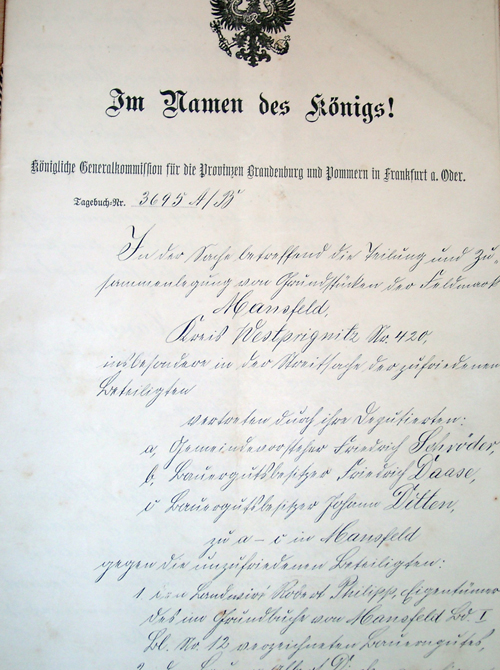 Im Namen des Königs!
Königliche Generalkommission für die Provinzen Brandenburg und Pommern in Frankfurt a. Oder.
Tagebuch-Nr. 3695 A/B
In der Sache betreffend die Teilung und Zu-
sammenlegung von Grundstücken der Feldmark
Mansfeld,
Kreis Westprignitz No. 420,
insbesondere in der Streitsache der zufriedenen
Beteiligten
vertreten durch ihre Deputierten:
a, Gemeindevorsteher Friedrich Schröder,
b, Bauergutsbesitzer Friedrich Daase,
c Bauergutsbesitzer Johann Ditten,
zu a - c in Mansfeld
gegen die unzufriedenen Beteiligten:
1 den Landwirt Robert Philipp, Eigentümer
des im Grundbuche von Mansfeld Bd. I
Bl. No. 12 verzeichneten Bauerngutes,